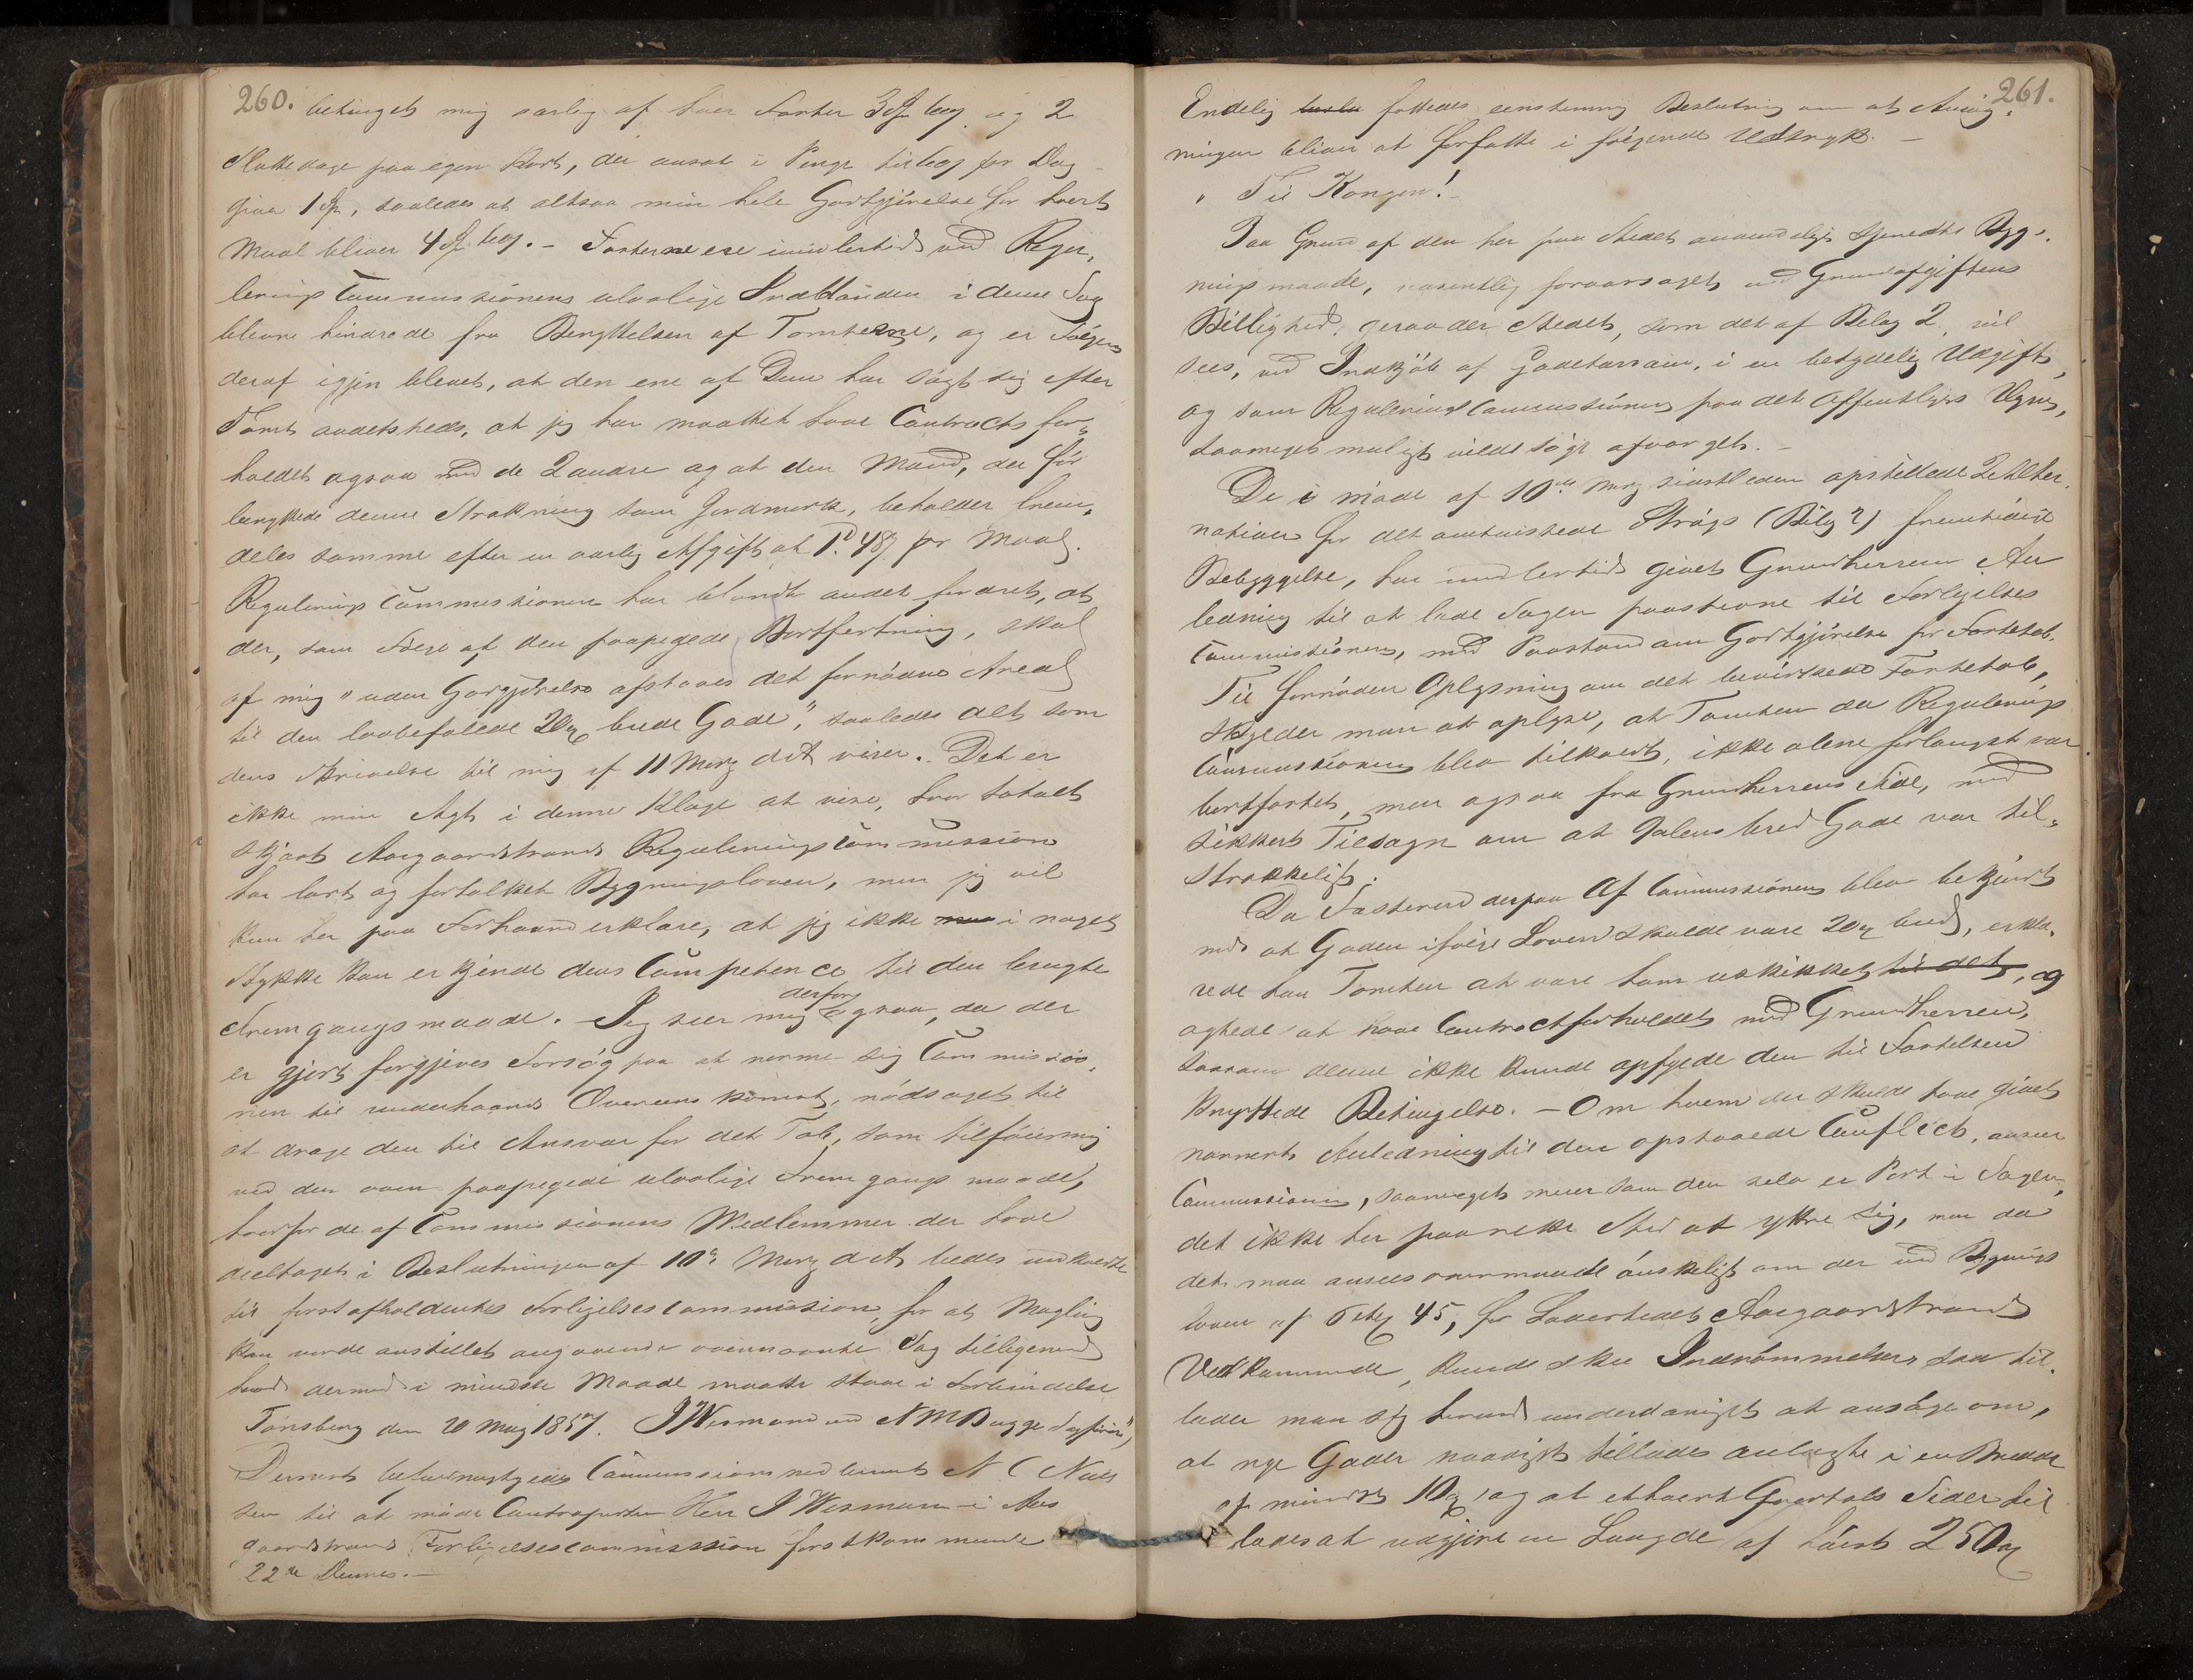 260.
betinget mig særlig af hver Fæster 3 Sp aarlig og 2
Slattedage paa egen Kost, der ansat i Penge til for Dag
giver 1 Sp, saaledes at altsaa min hele Godtgjørelse for hvert
Maal bliver 4 Sp. – Fæsterne ere imidlertid ved Regu-
lerings Commissionens ulovlige Indblanden i denne Sag
blevne hindrede fra Benyttelsen af Tomterne, og er Følgen
deraf igjen blevet, at den ene af Dem har søgt sig efter
Tomt andetsteds, at jeg har maattet hæve Contracts for-
holdet ogsaa med de 2 andre og at den Mand, der før
benyttede denne Strækning som Jordmark, beholder frem-
deles samme efter en aarlig Afgift at 1 48 pr Maal.
Regulerings Commissionen har blandt andet fordret, at
der, som Følge af den paapegede Bortfæstning, skal
af mig "uden Godtgjørelse afstaaes det fornødne Areal
til den lovbefalede 20 al brede Gade", saaledes alt som
dens Skrivelse til mig af 11 Marz d A viser. Det er
ikke min Agt i denne Klage at vise, hvor totalt
skjævt Aasgaardstrands Regulerings Commission
har lært og fortolket Bygningsloven, men jeg vil
kun her paa Forhaand erklære, at jeg ikke i noget
Stykke kan erkjende dens Competence til den brugte
Fremgangsmaade. – Jeg seer mig derfor ogsaa, da der
er gjort forgjeves Forsøg paa at nærme sig Commissio-
nen til underhaands Overeenskomst, nødsaget til
at drage den til Ansvar for det Tab, som tilføies mig
ved den oven paapegede ulovlige Fremgangsmaade,
hvorfor de af Commissionens Medlemmer der have
deeltaget i Beslutningen af 10de Marz d A bedes indkaldte
til først afholdendes Forligelsescommission, for at Mægling
kan vorde anstillet angaaende ovennævnte Sag tilligemed
hvad dermed i mindste Maade maatte staae i Forbindelse
Tønsberg den 20 Marz 1857. J Wesmann ved N M Bugge Sagfører",
Dernest befuldmægtigedes Commissionsmedlemmet N C Niel
sen til at møde Contraparten Herr J Wesmann i Aas
gaardstrands Forligelsescommission førstkommende
22de Dennes. –
261.
Endelig fattedes eenstemmig Beslutning om at Ansøg-
ningen bliver at forfatte i følgende Udtryk. –
" Til Kongen! –
Paa Grund af den her paa Stedet anvendelige spredte Byg-
ningsmaade, væsentlig foraarsaget ved Grundafgiftens
Billighed, geraader Stedet, som det af Bilag 2, vil
sees, ved Indkjøb af Gadeterrain, i en betydelig Udgift,
og som Regulerings Commissionen paa det Offentliges Vegne,
saameget muligt vilde søge afværget. –
De i Møde af 10de Marz sidstleden opstillede 2 Alter-
nativer for det omtvistede Strøgs (Bilag 2) fremtidige
Bebyggelse, har imidlertid givet Grundherren An
ledning til at lade Sagen paastevne til Forligelses
Commissionen, med Paastand om Godtgjørelse for Fæstetab.
Til fornøden Oplysning om det bevirkede Fæstetab,
skynder man at oplyse, at Tomten da Regulerings
Commissionen blev tilkaldt, ikke alene forlængst var
bortfæstet, men ogsaa fra Grundherrens Side, med
sikkert Tilsagn om at 9 alens bred Gade var til-
strækkeligt.
Da Fæsteren derpaa Af Commissionen blev bekjendt
med at Gaden ifølge Loven skulde være 20 al bred, erklæ-
rede han Tomten at være ham uskikket til det, og
agtede at hæve Contractforholdet med Grundherren,
saasom denne ikke kunde opfylde den til Fæstelsen
knyttede Betingelse. – Om hvem der skulde have givet
nærmest Anledning til den opstaaede Conflict, anseer
Commissionen, saameget meer som den selv er Part i Sagen,
det ikke her paa rette Sted at yttre sig, men da
det maa ansees overmaade ønskeligt om der ved Bygnings
loven af 6 Sept 45, for Ladestedet Aasgaardstrands
Vedkommende, kunde skee Indrømmelser saa til-
lader man sig herved underdanigst at ansøge om,
at nye Gader naadigst tillades anlagte i en Bredde
af mindst 10 al, og at ethvert Qvartals Sider til
lades at udgjøre en Længde af høist 250 al